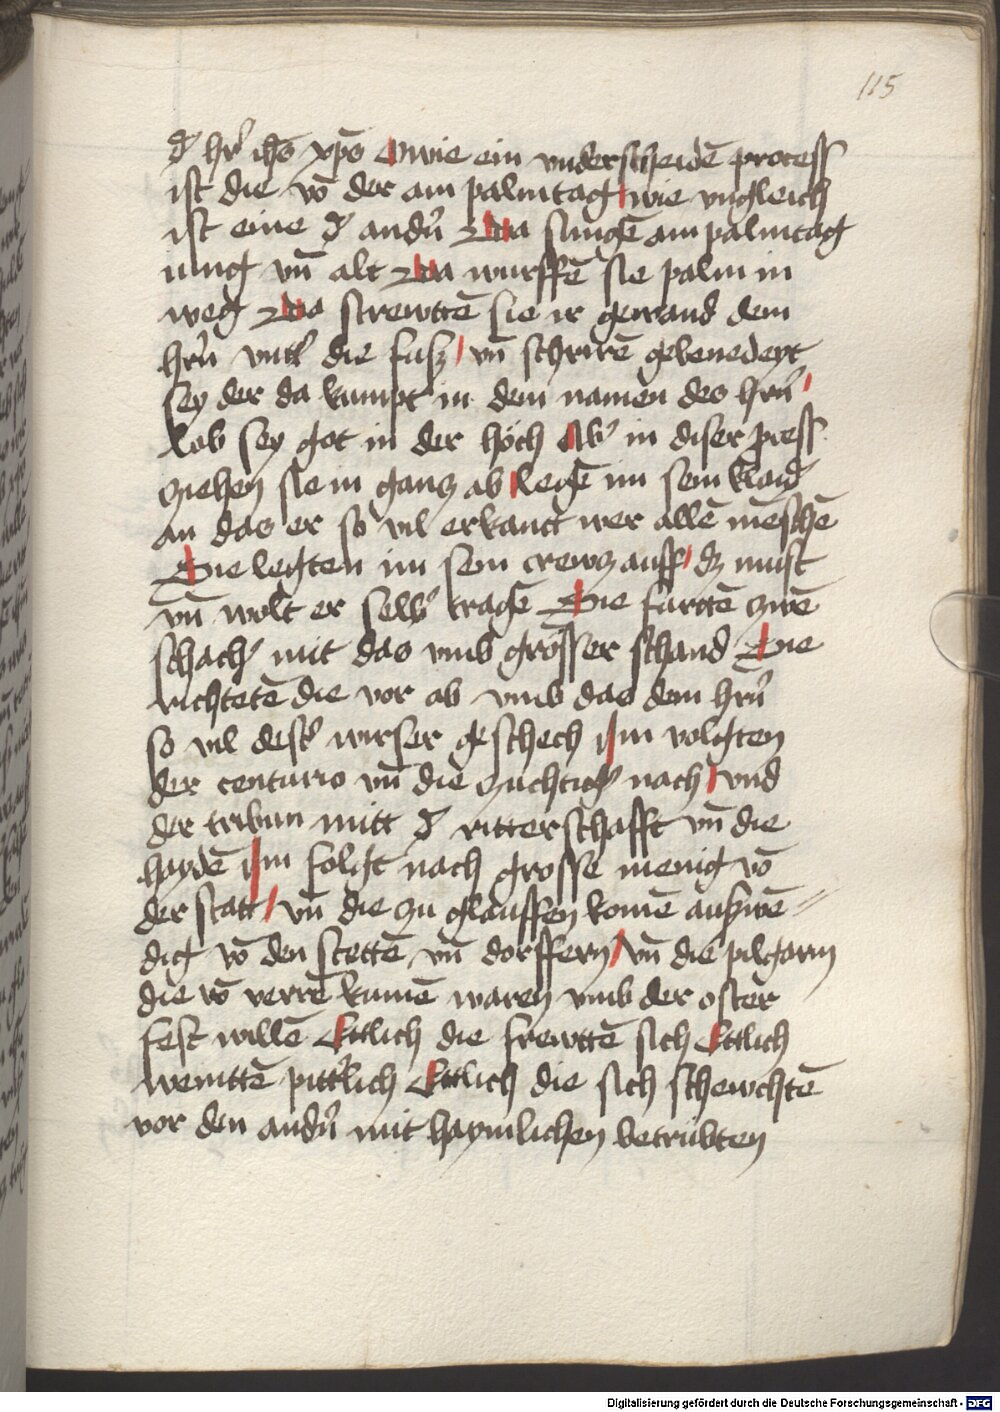 115
d' hr' ihs̄ xp̄s O wie ein underscheidē process
ist die vō der am palmtag / wie ungleich
ist eine d' andn̄ Da sungē am palmtag
iung vn̄ alt Da wurffē sie palm in
weg Da strewttē sie ir gewand dem
hrn̄ vntt' die fusz / vn̄ schrirē gebenedeyt
sey der da kumpt in dem namen des hrn̄ /
lob sey got in der höch Ab' in diser p̄cess
ziehen sie in gancz ab / legē im sein klaid
an das er so vil erkanct wer allē mēschē
Sie legten im sein crewcz auff / dz must
vn̄ wolt er selb' tragē Sie furttē zwē
schach' mit das umb grosser schand Sie
richtetē die vor ab umb das dem hrn̄
so vil dest' wirser geschech Im volgten
der centurio vn̄ die zuchtig' nach / und
der tribun mitt d' ritterschafft vn̄ die
haydē Im folgt nach grosse menig vō
der statt / vn̄ die zu glauffen komē auszwē=
dig vō den stettē vn̄ dorffern / vn̄ die pilgarin
die vō verrē kumē waren umb der oster
fest willē Ettlich die frewttē sich Ettlich
weinttē pitt'lich Ettlich die sich schewchtē
vor den andn̄ mit haymlichen betrübten
Digitalisierung gefördert durch die Deutsche Forschungsgemeinschaft - DFG